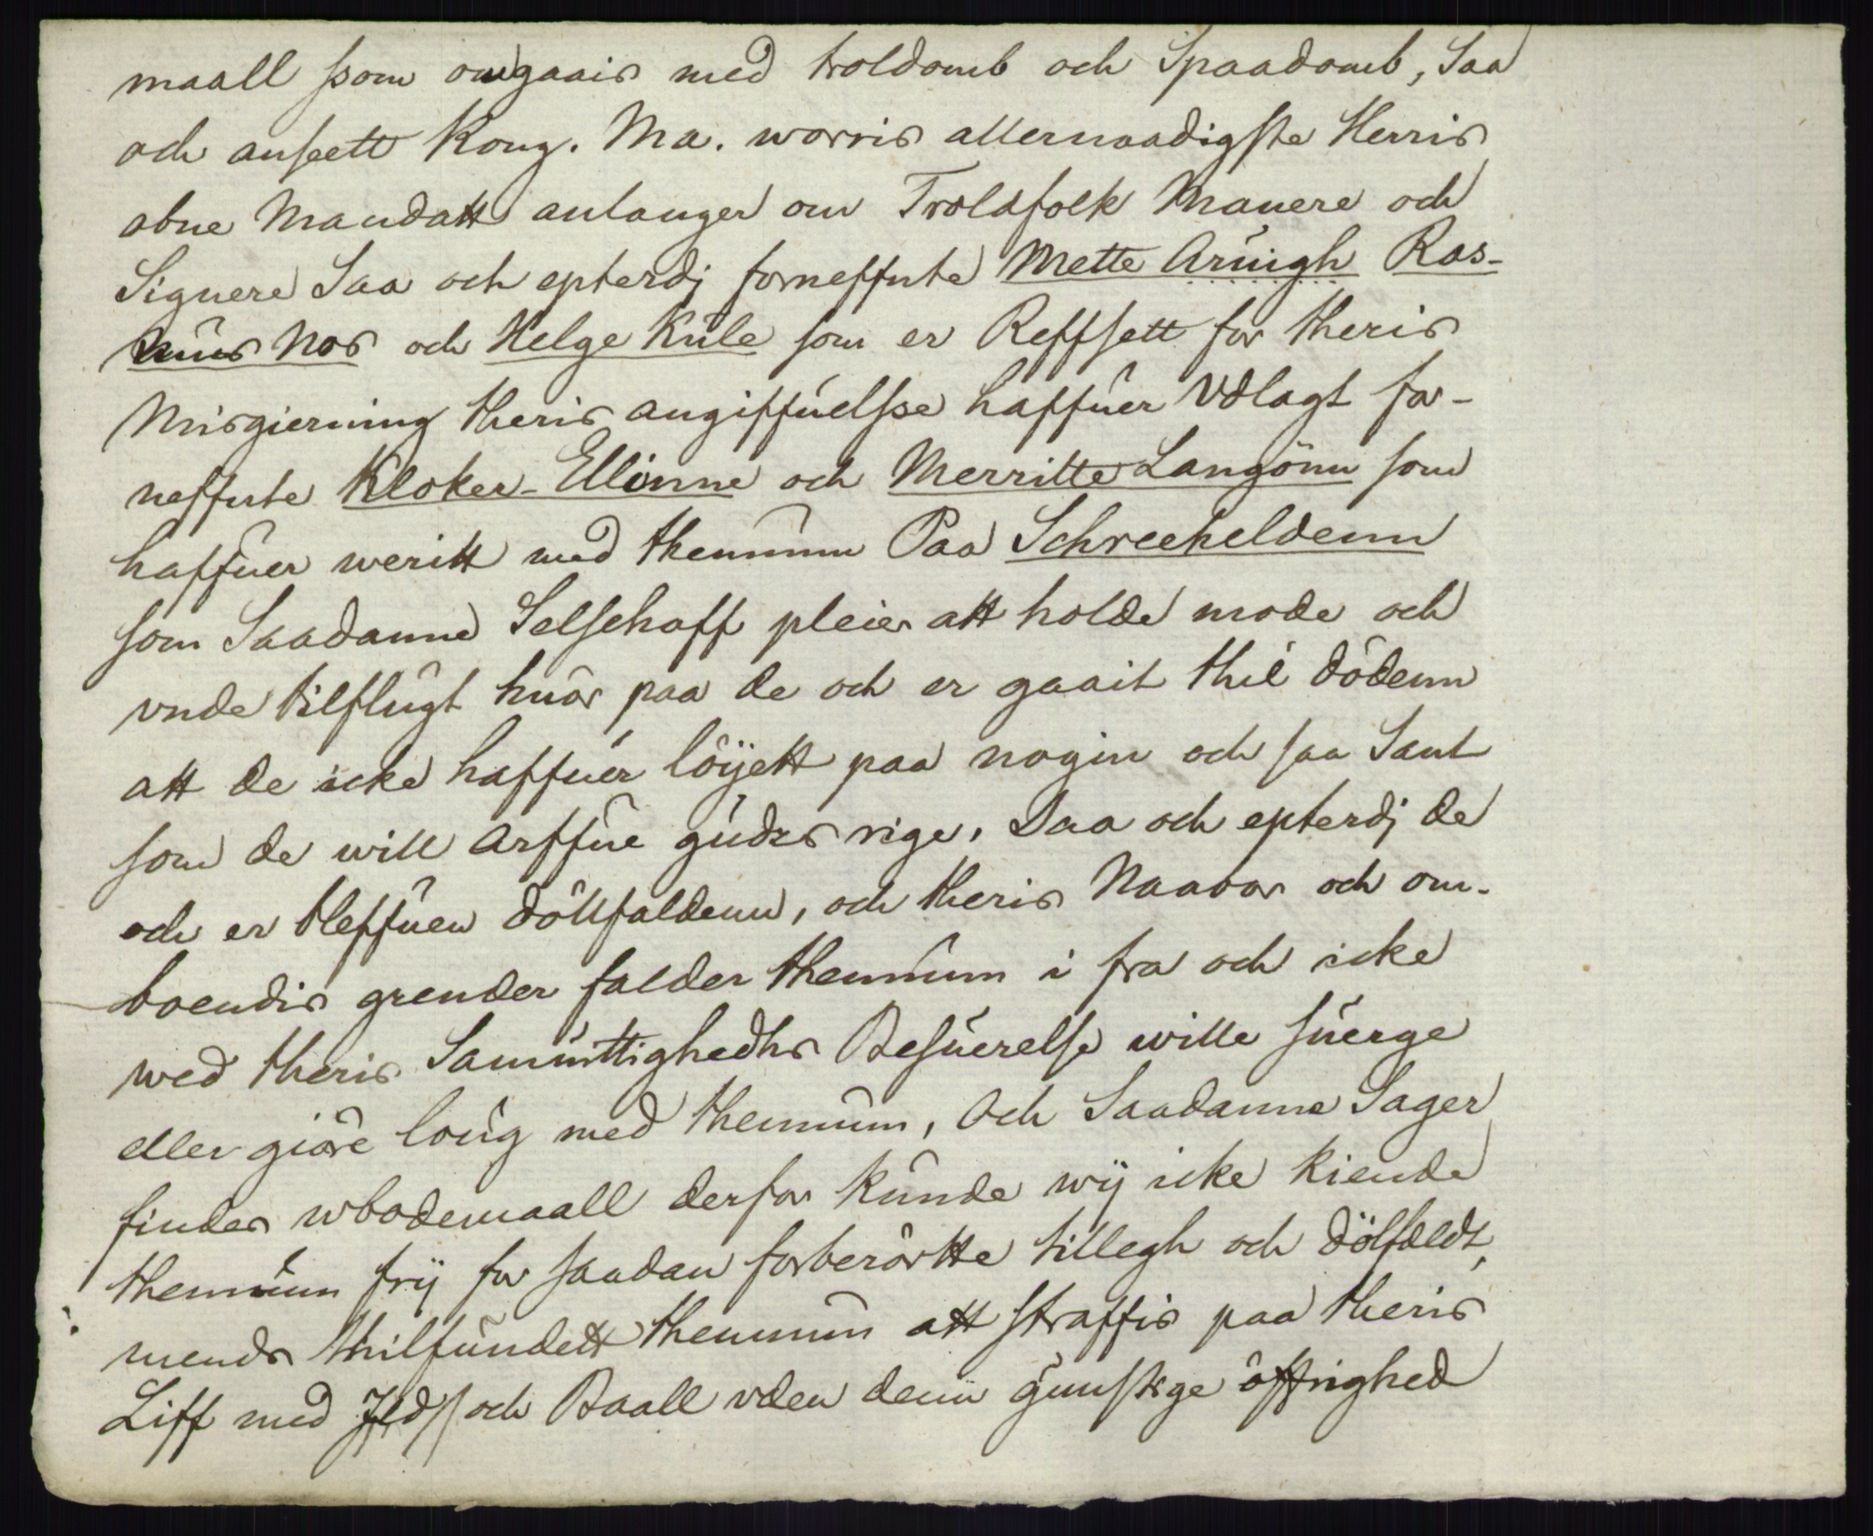 maall ssom omgaais med troldomb och Spaadomb, Saa
och anseett Kong. Ma. worris allernaadigste Herris
obne Mandatt anlanger om Troldfolk Manere och
Signere Saa och epterdj forneffnte Mette Aruigh Ras-
mus Nos och Helge Kule som er Reffsett for theris
Misgierning theris angiffuelsse haffuer Vdlagt for-
neffnte Kloker-Ellinne och Merritte Langönn som
haffuer weritt med themmum Paa Schreekeldenn
som Saadanne Selschaff pleier att holde mode och
vnde tilflugt huor paa de och er gaait thil dödenn
att de icke haffuer löyett paa nogin och saa Sant
som de will Arffue gudts rige. Daa och epterdj de
och er bleffuen döllfaldenn, och theris Naaboer och om-
boendis grender falder themmum i fra och icke
wed theris Samuittighedhs Besuerelse wille suerge
eller giöre loug med themmum, Och Saadanne Sager
findes wbodemaall derfor kunde wÿ icke kiende
themmum frÿ for saadan forberörtte tillegh och dölfeldt,
mends thilfundett themmum att straffis paa theris
Liff med Jld och Baall vden denn gunstige öffrighed